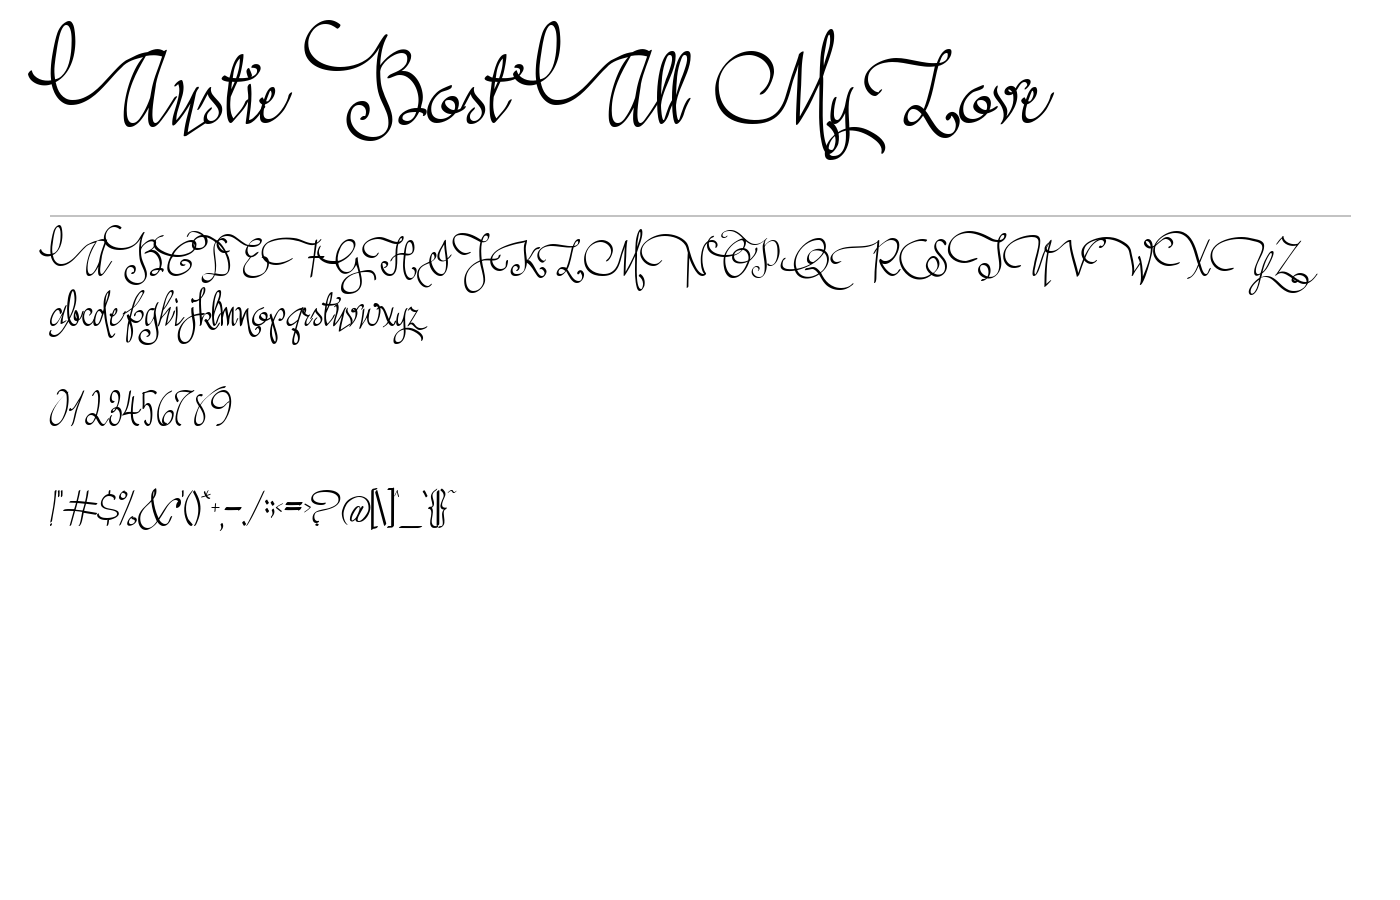 Austie Bost All My Love
ABCDEFGHIJKLMNOPQRSTUVWXYZ
abcdefghijklmnopqrstuvwxyz
0123456789
!"#$%&'()*+,-./:;<=>?@[\]^_`{|}~